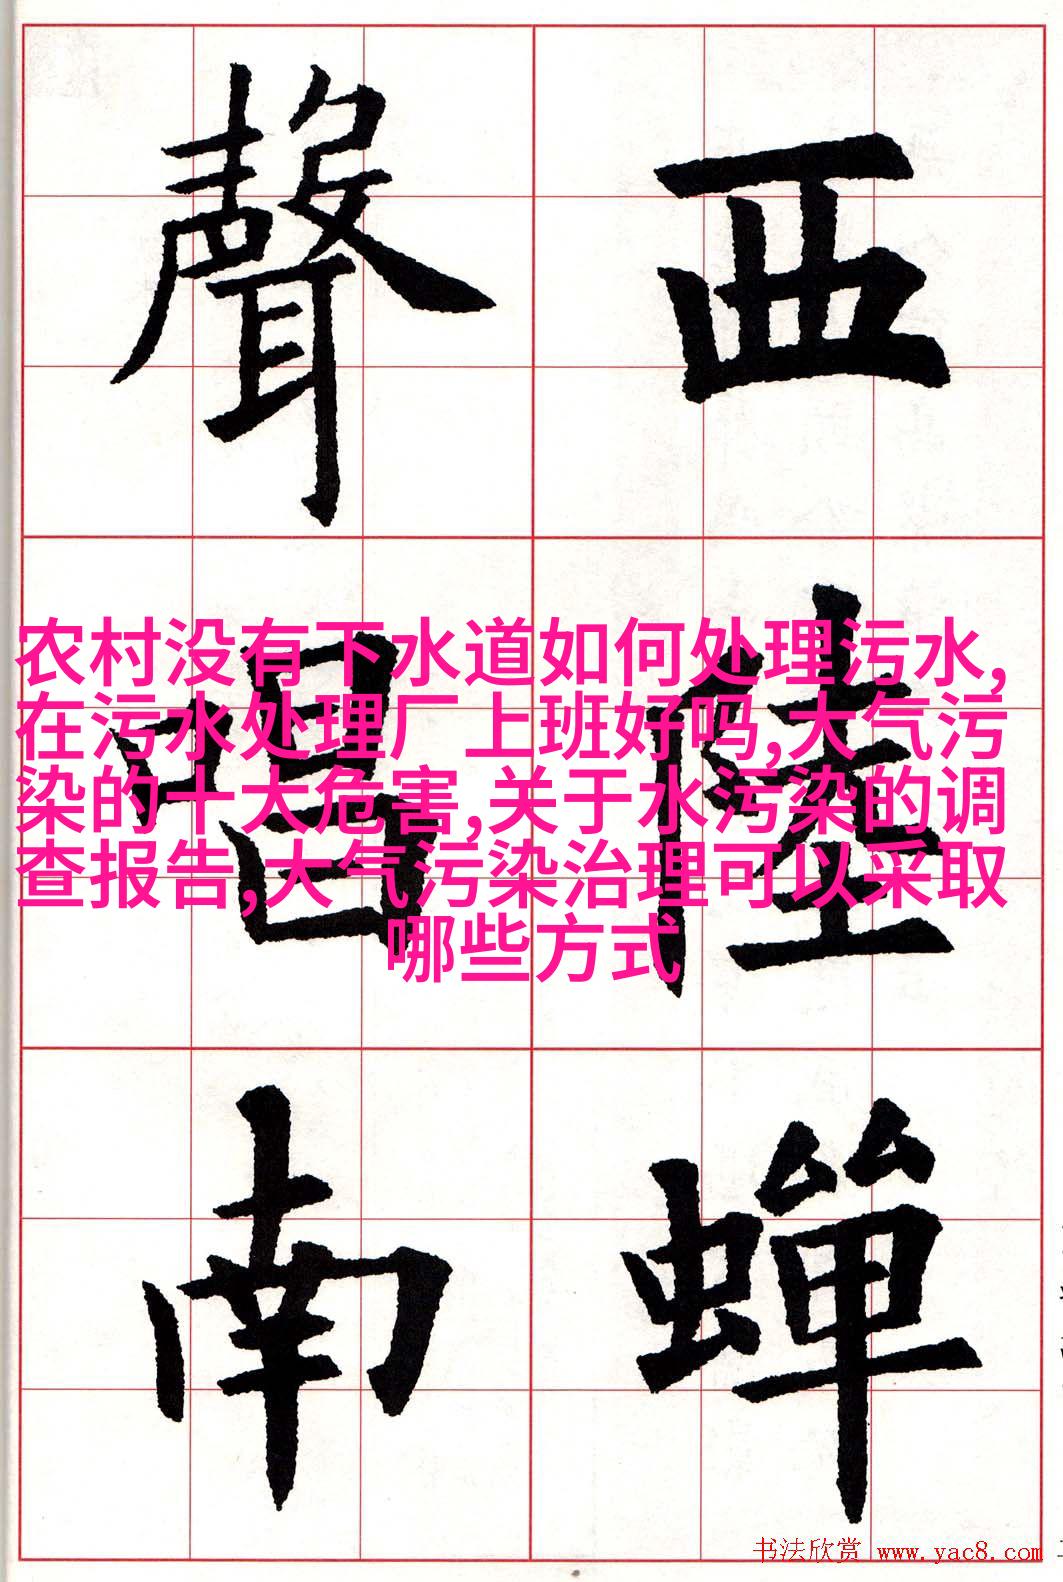 西陸蟬
聲唱南
农村没有下水道如何处理污水,
在污水处理厂上班好吗,大气污
染的十大危害,关于水污染的调
查报告,大气污染治理可以采取
哪些方式
书法欣赏 www.yac8.com